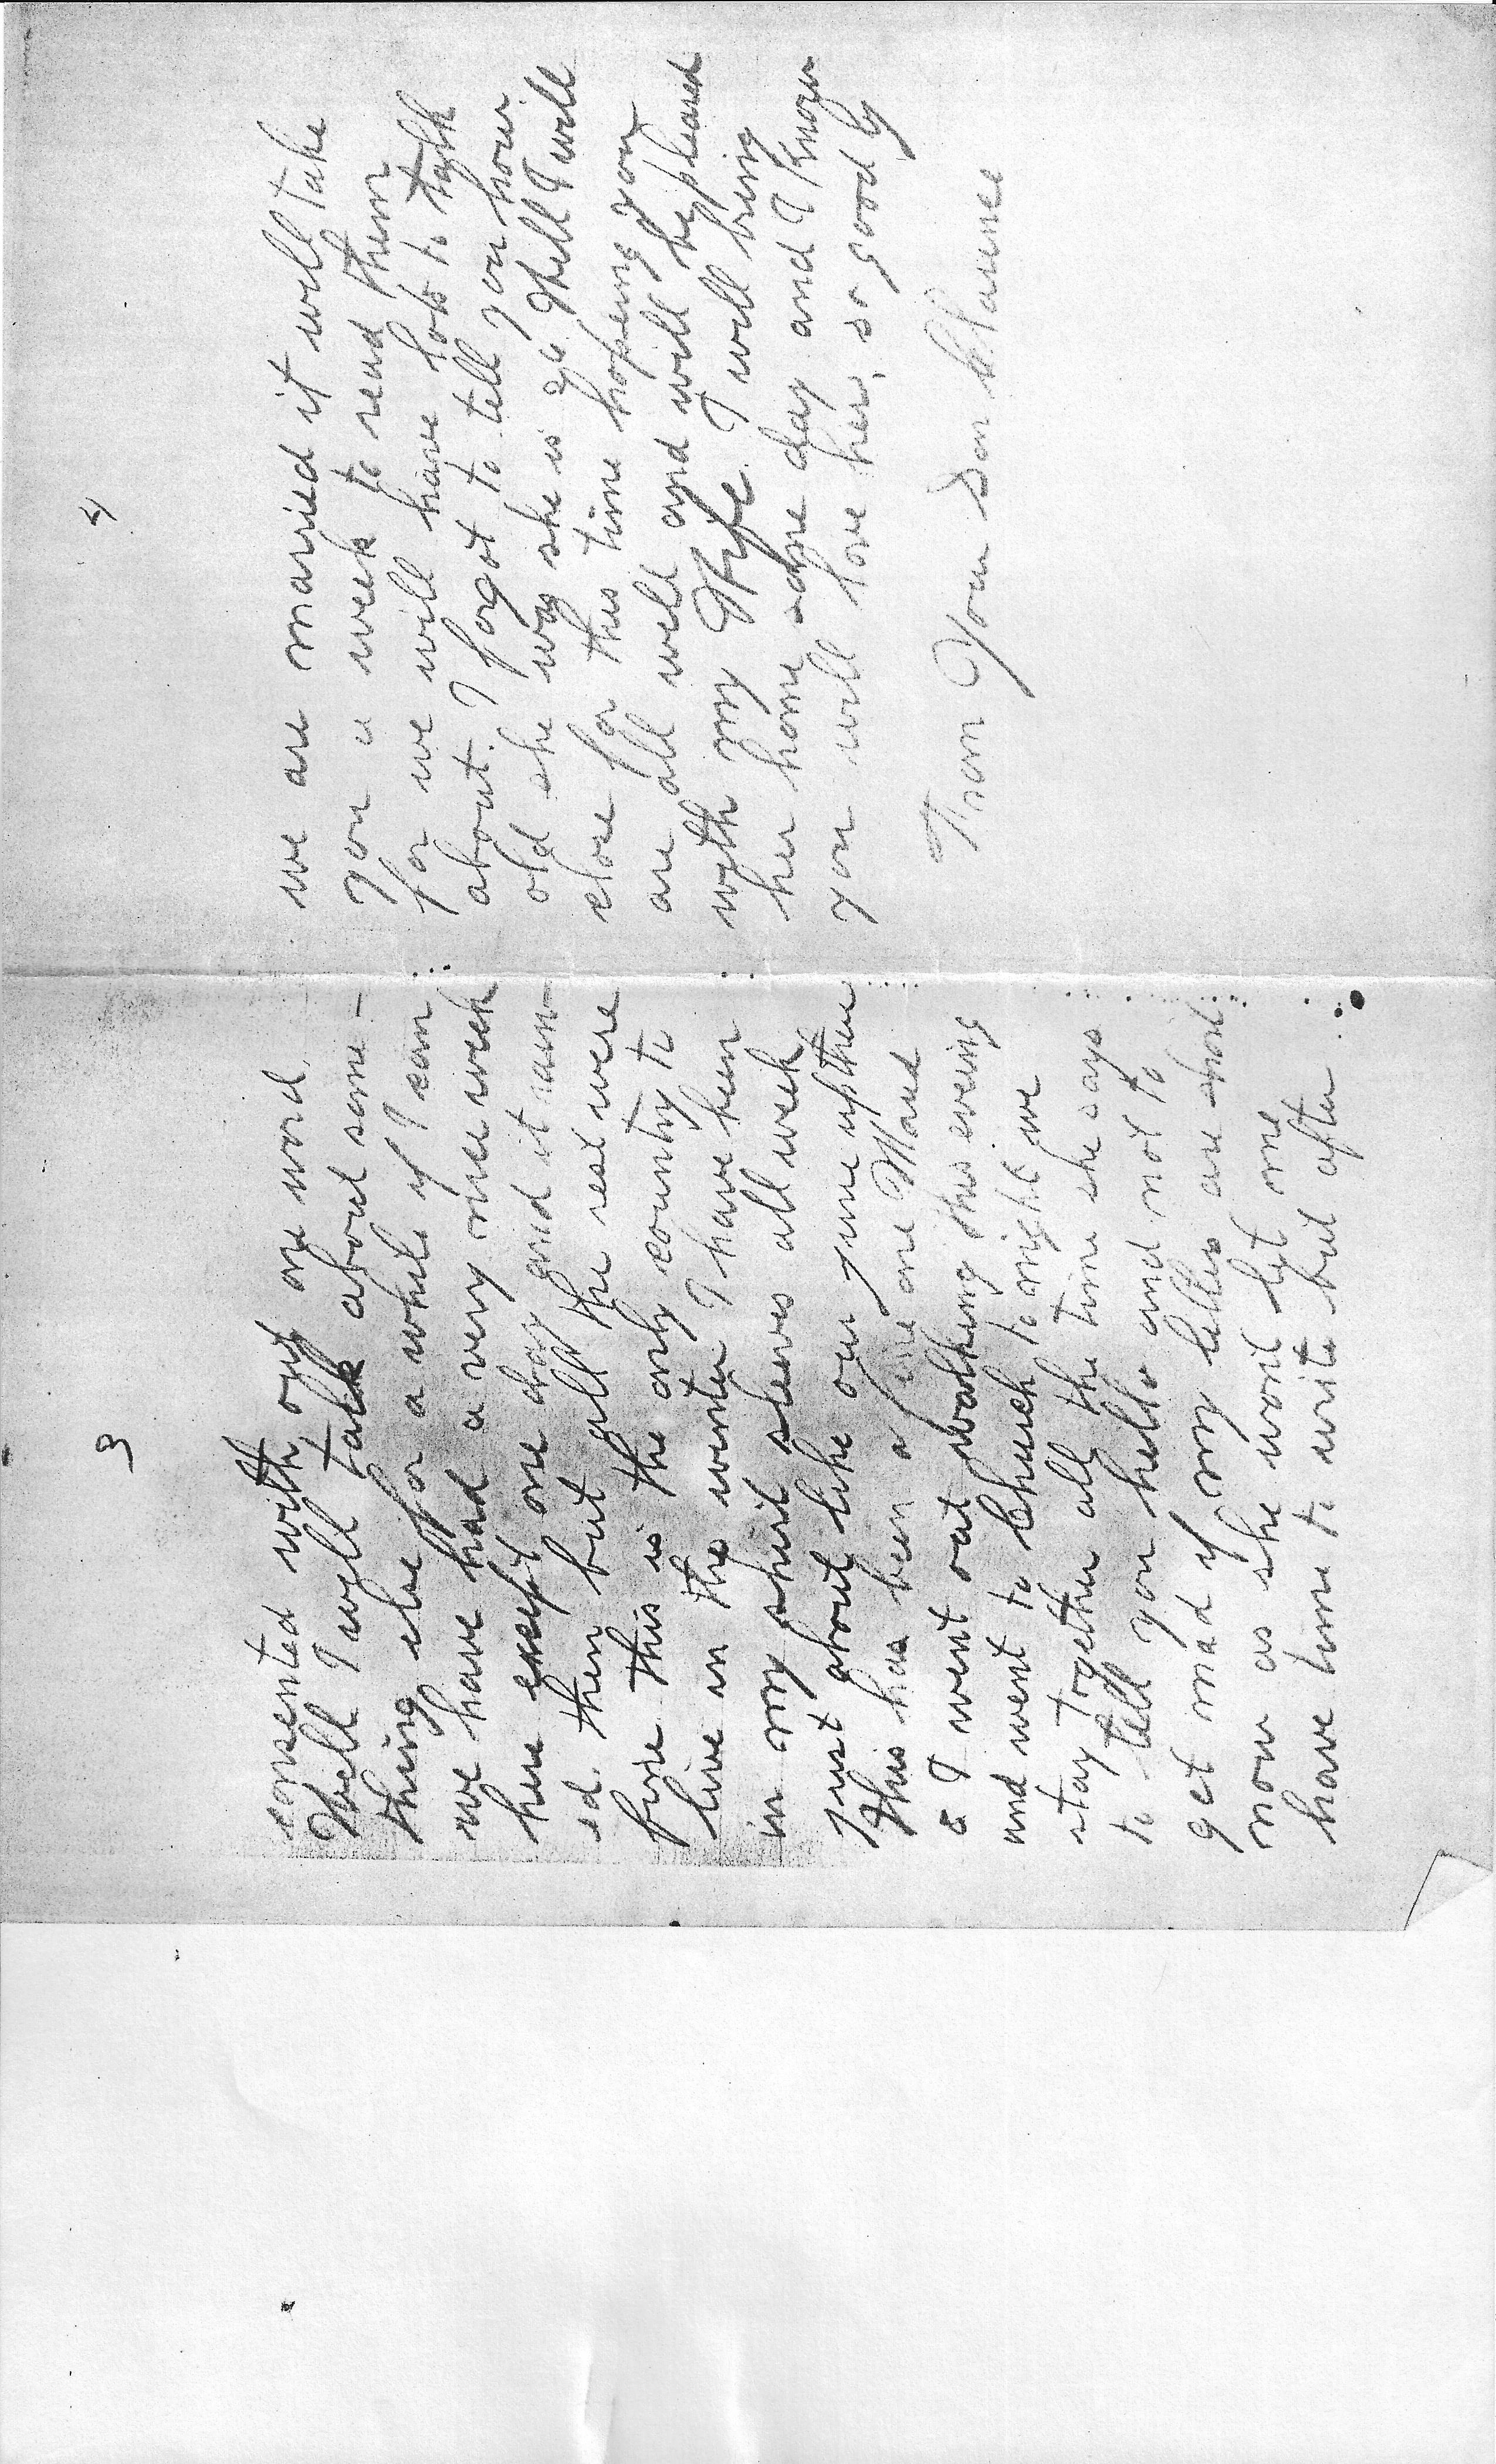 3
consented with out one word.
Well I will talk about some-
thing else for a while if I can
we have had a very nice week
here except one day and it rain-
ed then but all the rest were
fine this is the only country to
live in the winter I have been
in my shirt sleeves all week
just about like our June up there
This has been a fine one Maud
& I went out walking this evening
and went to Church to night we
stay together all the time she says
to tell you hello and not to
get mad if my letters are short
now as she wont let me
have time to write but after
4
we are married it will take
you a week to read them
for we will have lots to talk
about. I forgot to tell you how
old she was she is Well I will
close for this time hopeing you
are all well and will be pleased
with my Wife. I will bring
her home some day and I know
you will love her, so good by
From Your Son Clarence